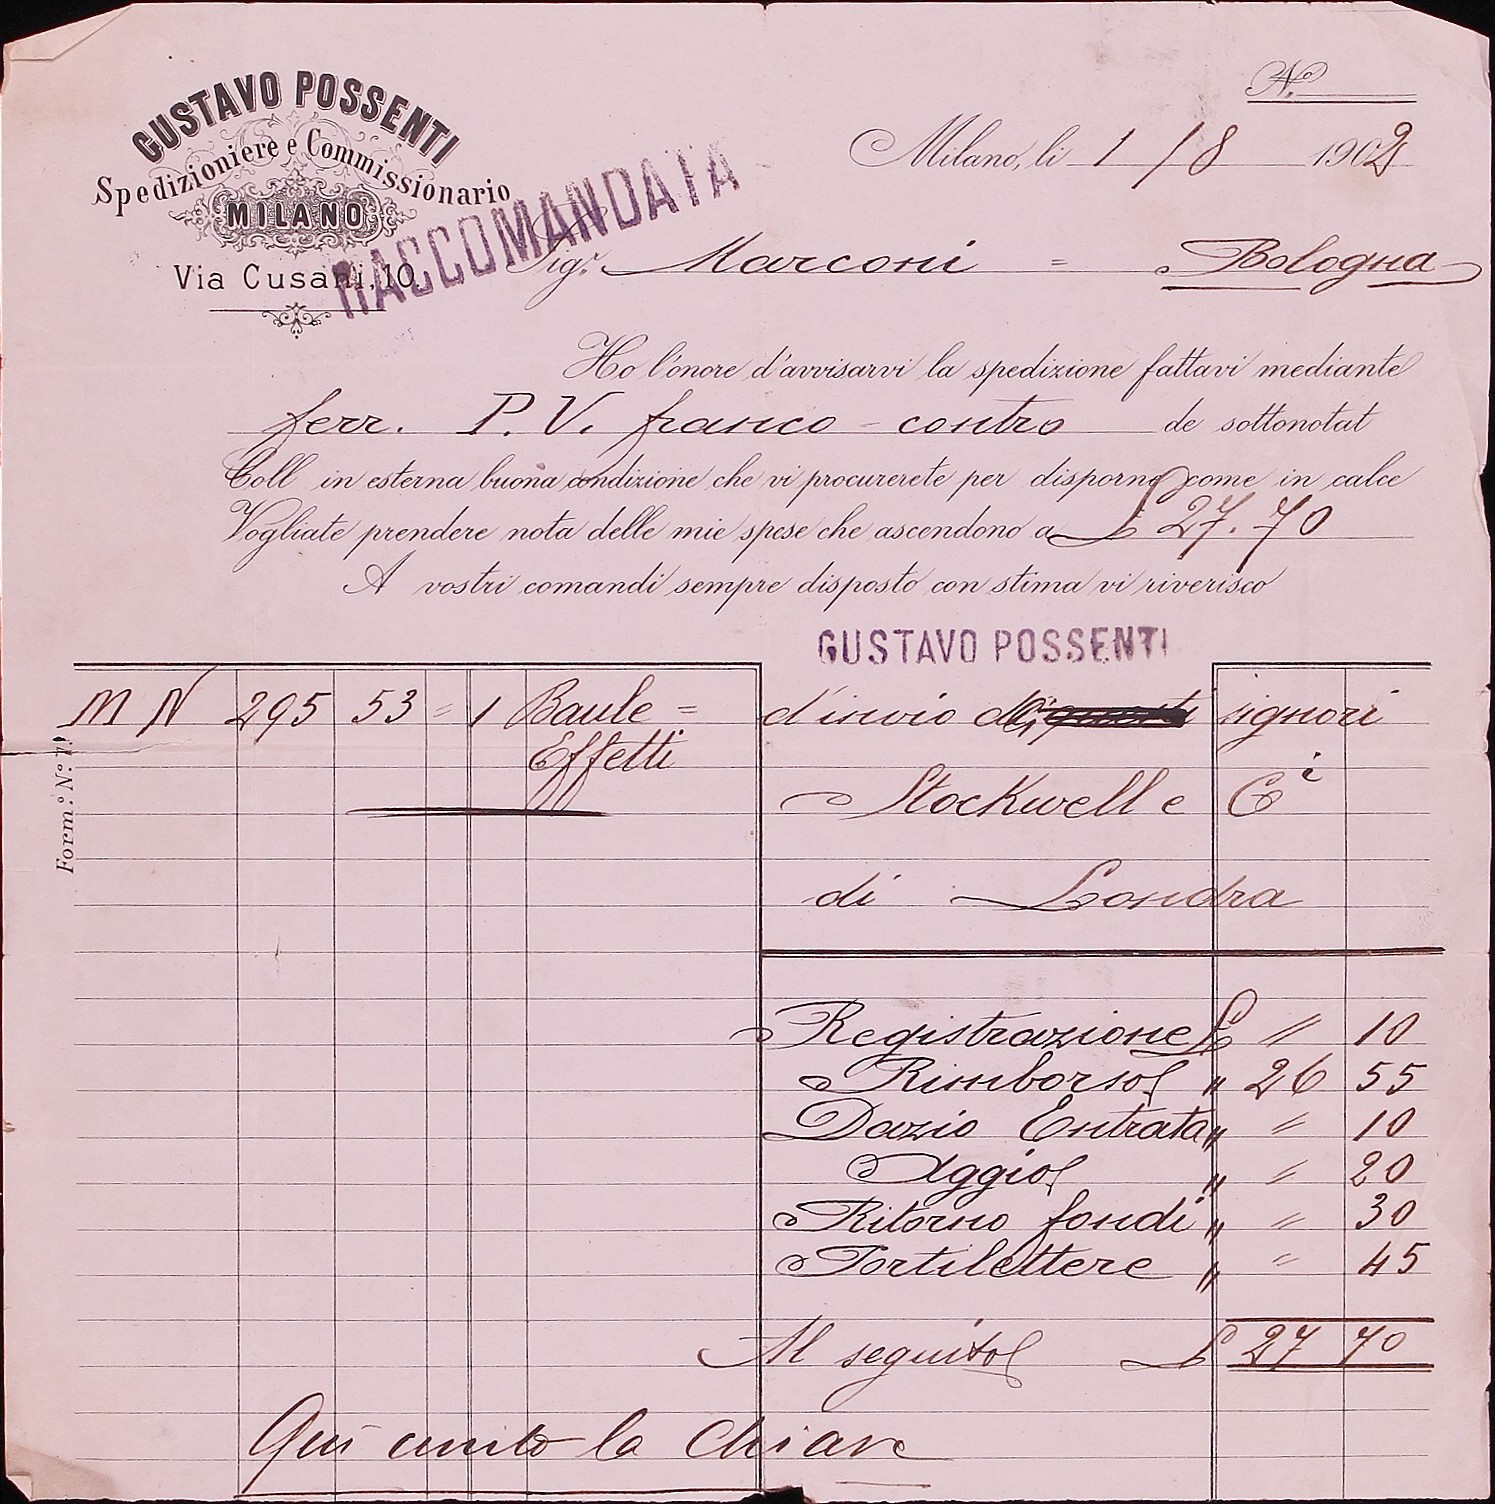 GUSTAVO POSSENTI
Spedizioniere e Commissionario
MILANO
Via Cusani, 10.
RACCOMANDATA
N.
Milano, li 1/8 1902
Sigr. Marconi = Bologna
Ho l'onore d'avvisarvi la spedizione fattavi mediante
ferr. P. V. franco - contro de sottonotat
Coll in esterna buona condizione che vi procurerete per disporne come in calce
Vogliate prendere nota delle mie spese che ascendono a £ 27.70
A vostri comandi sempre disposto con stima vi riverisco
GUSTAVO POSSENTI
M N 295 53 = 1 Baule =
Effetti
Form.o N.o 1.
d'invio dei signori
Stockwell e Ci
di Londra
Registrazione £ " 10
Rimborso " 26 55
Dazio Entrata " " 10
Aggio " " 20
Ritorno fondi " " 30
Portilettere " " 45
Al seguito £ 27 70
Qui unito la chiave